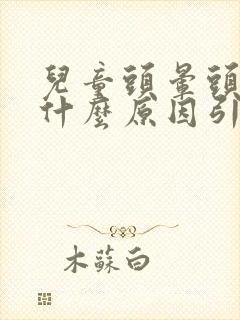 兒童頭暈頭
什麼原因引
木蘇白